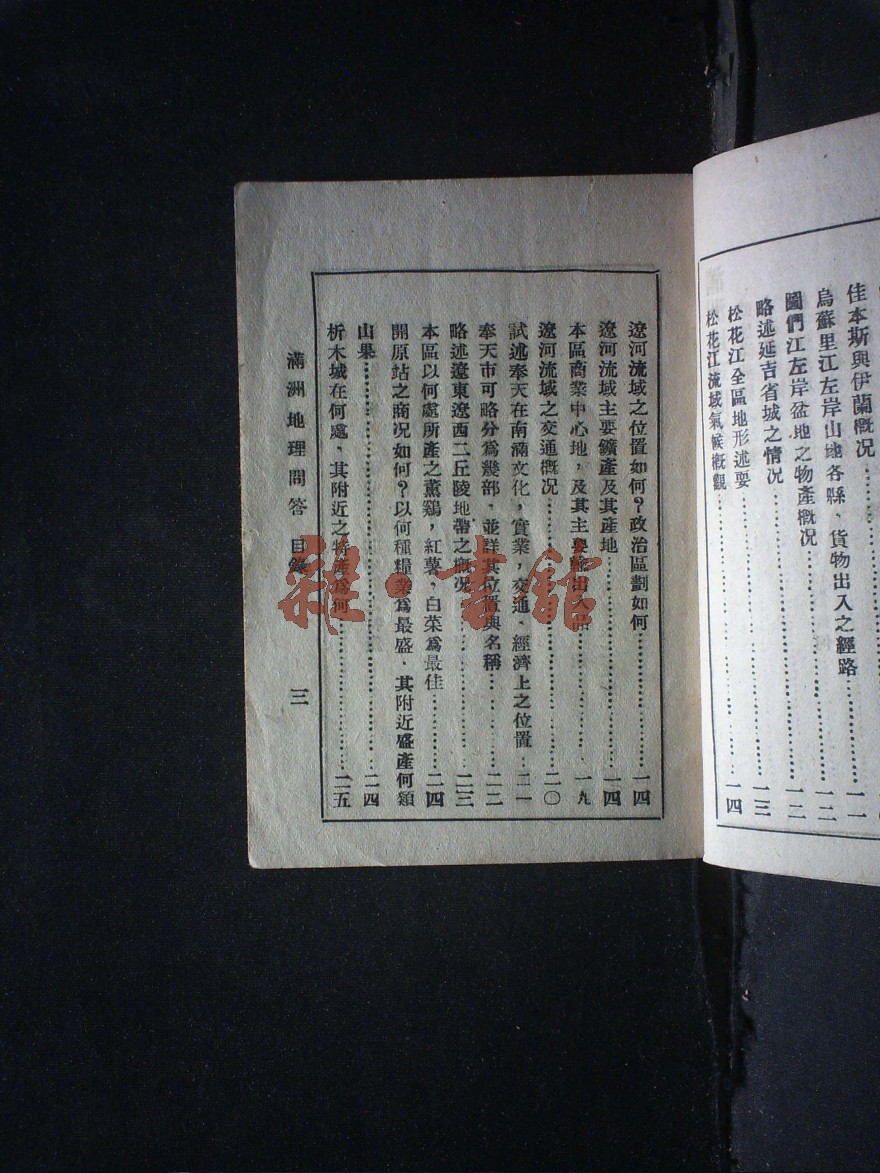 佳本斯與伊蘭概况
烏蘇里江左岸山地各縣、貨物出入之經路……一一
圖們江左岸盆地之物產概况……一二
略述延吉省城之情况……一二
松花江全區地形述要……一三
松花江流域氣候概觀……一四
遼河流域之位置如何？政治區劃如何……一四
遼河流域主要鑛產及其產地……一四
本區商業中心地，及其主要輸出入品……一九
遼河流域之交通概况……二〇
試述奉天在南滿文化，實業，交通、經濟上之位置……二一
奉天市可略分爲幾部、並詳其位置與名稱……二二
略述遼東遼西二丘陵地帶之概况……二三
本區以何處所產之薰鷄，紅薯、白菜爲最佳……二四
開原站之商况如何？以何種糧業爲最盛、其附近盛產何類
山果……二四
析木城在何處、其附近之特產爲何……二五
滿洲地理問答 目錄 三
雜·書館